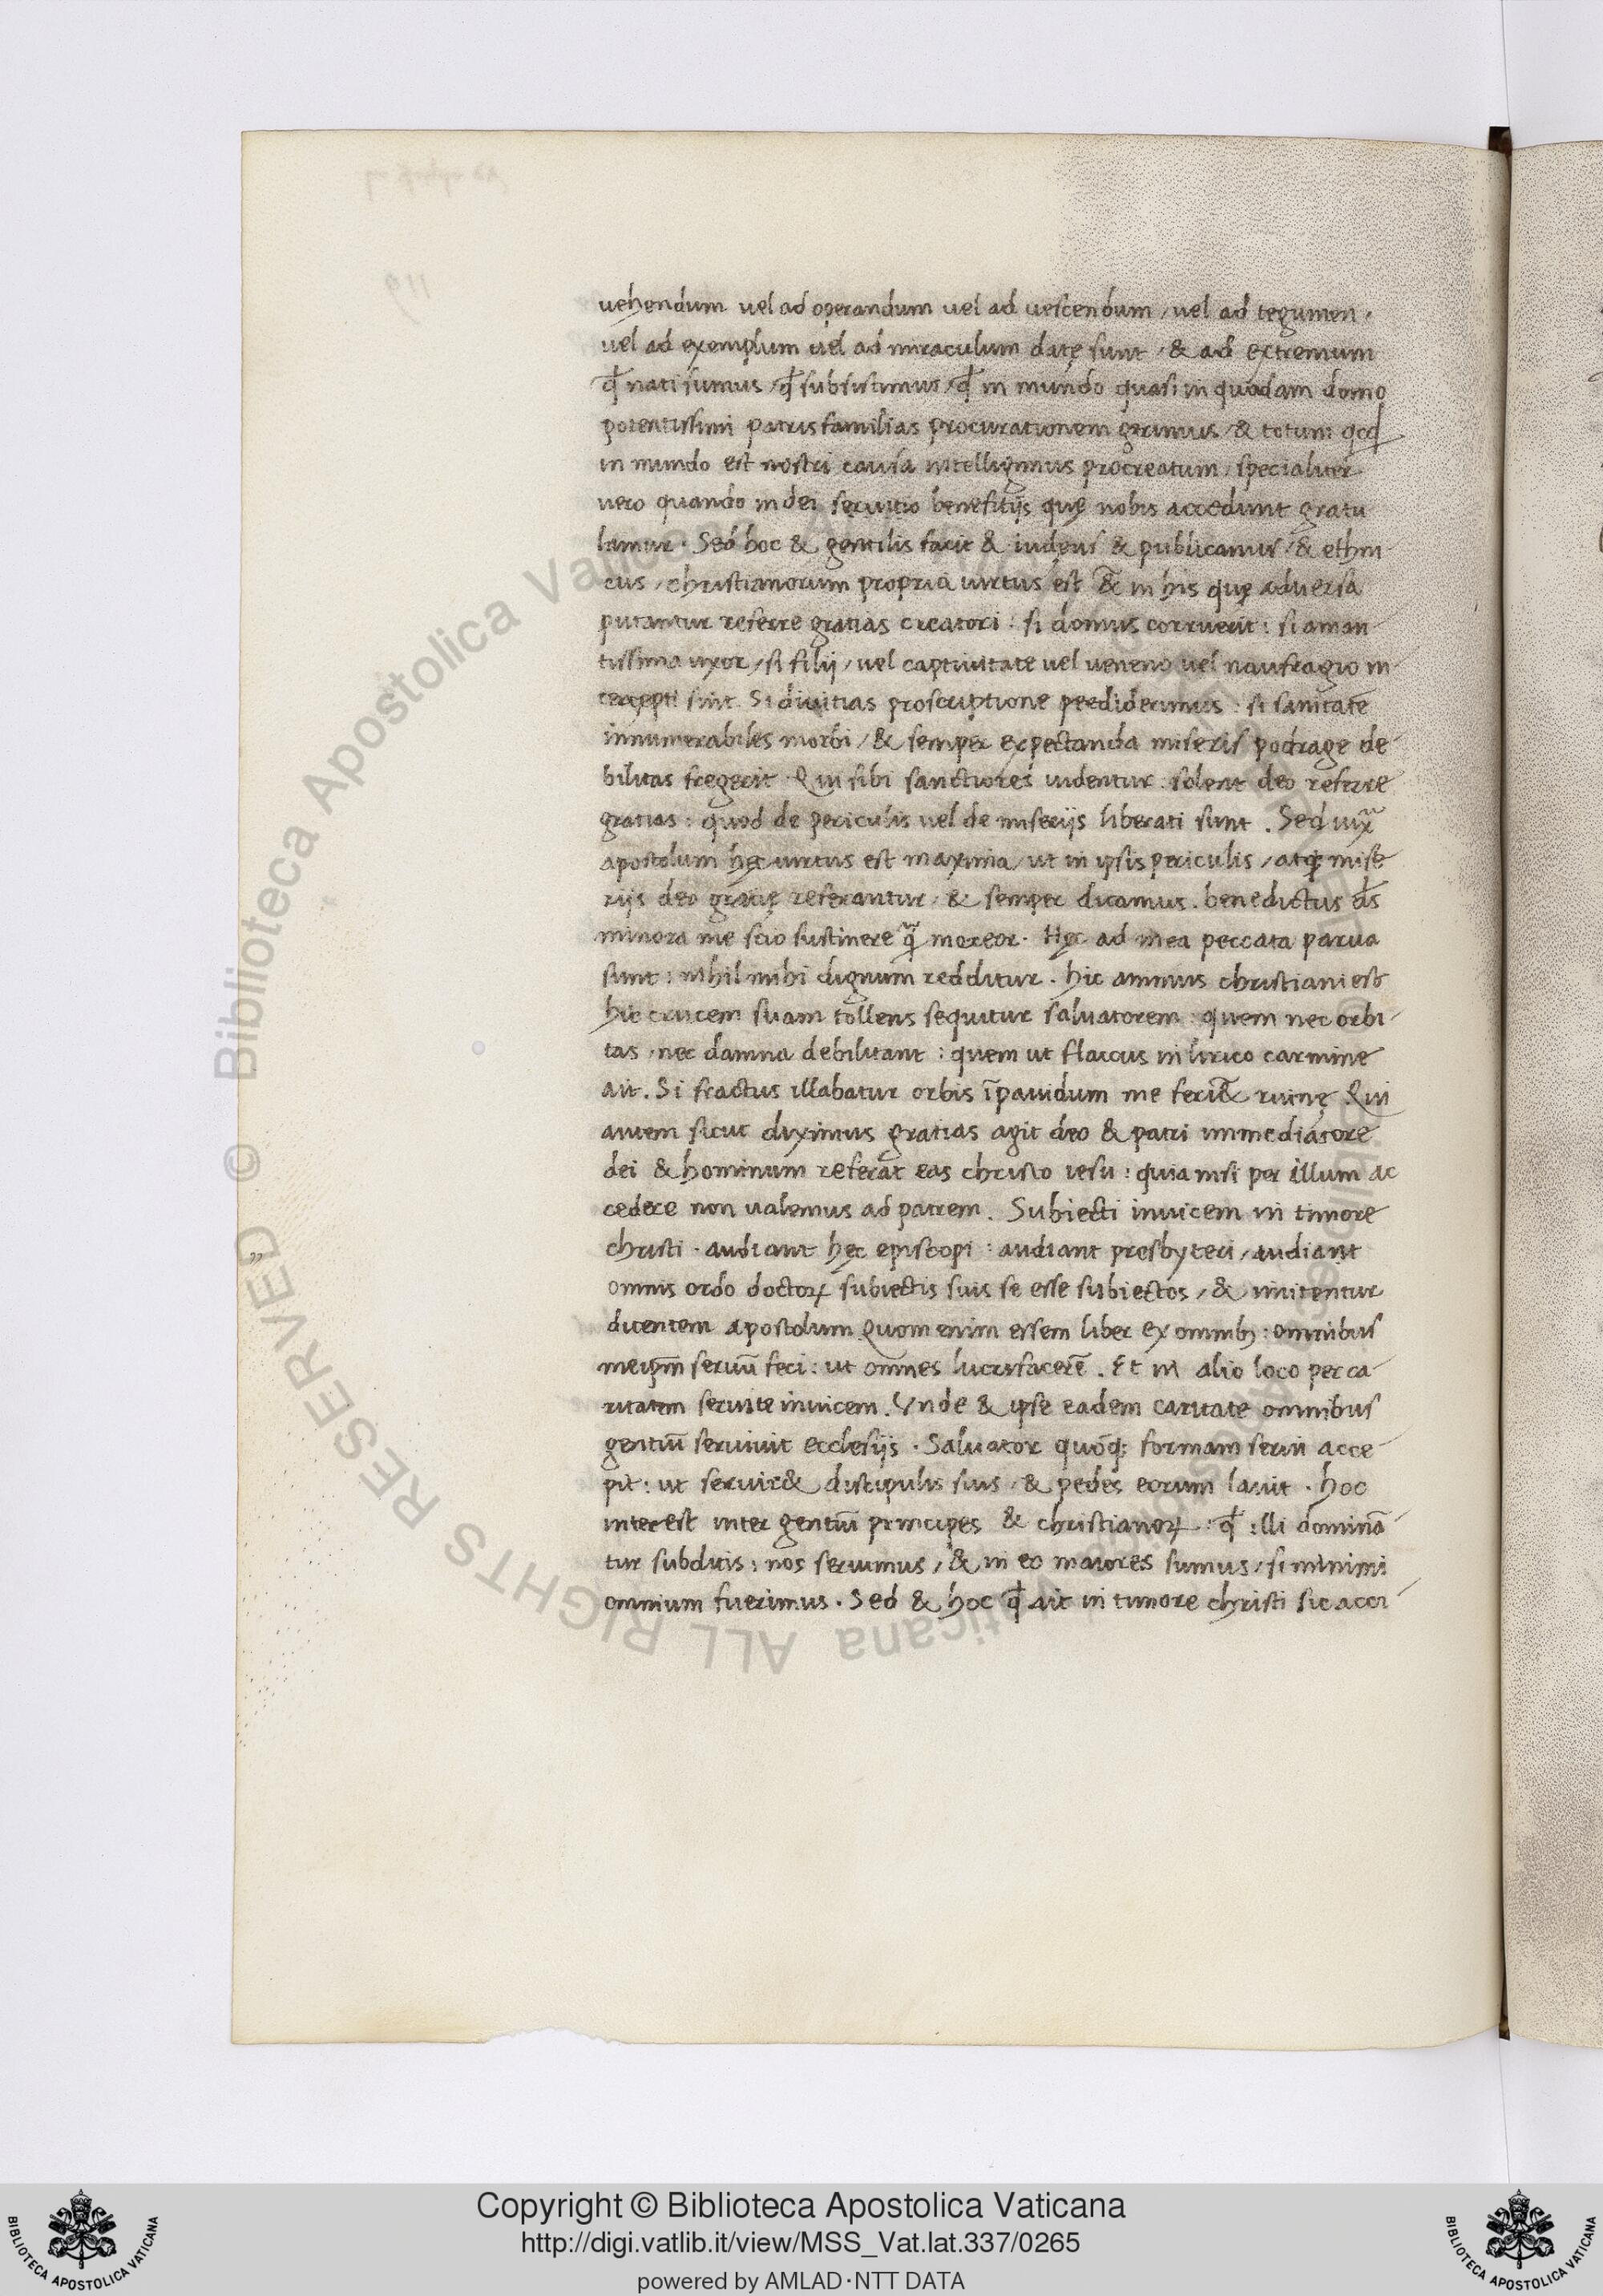 uehendum uel ad operandum uel ad uescendum / uel ad tegumen /
uel ad exemplum uel ad miraculum datę sunt / & ad extremum
ꝙ nati sumus / ꝙ subsistimus / ꝙ in mundo quasi in quadam domo
potentissimi patris familias procurationem gerimus / & totum qcqd
in mundo est nostri causa intelligimus procreatum / specialiter
uero quando in dei seruitio benefitijs quę nobis accedunt gratu
lamur . Sed hoc & gentilis facit & iudęus & publicanus / & ethni-
cus / christianorum propria uirtus est & in his quę aduersa
putantur referre gratias creatori : si domus corruerit : si aman
tissima uxor / si filij / uel captiuitate uel ueneno uel naufragio in-
tercepti sint . Si diuitias proscriptione perdiderimus : si sanitatē
innumerabiles morbi / & semper expectanda miseris podrage de-
bilitas fregerit . Qui sibi sanctiores uidentur : solent deo referre
gratias : quod de periculis uel de miserijs liberati sunt . Sed iuxa
apostolum hęc uirtus est maxima / ut in ipsis periculis / atq; mise-
rijs deo gratię referantur / & semper dicamus . benedictus ds̄
minora me scio sustinere q̄ mereor . Hęc ad mea peccata parua
sunt : nihil mihi dignum redditur . hic animus christiani est
hic crucem suam tollens sequitur saluatorem : quem nec orbi-
tas / nec damna debilitant : quem ut flaccus in lirico carmine
ait . Si fractus illabatur orbis īpauidum me feri& ruinę Qui
autem sicut diximus gratias agit deo & patri immediatore
dei & hominum referat eas christo iesu : quia nisi per illum ac
cedere non ualemus ad patrem . Subiecti inuicem in timore
christi . audiant hęc episcopi : audiant presbyteri / audiant
omnis ordo doctoꝝ subiectis suis se esse subiectos / & imitentur
dicentem apostolum Quom enim essem liber ex omnib; : omnibus
meip̄m seruū feci : ut omnes lucrifacerē . Et in alio loco per ca-
ritatem seruite inuicem . Vnde & ipse eadem caritate omnibus
gentiū seruiuit ecclesijs . Saluator quoq; formam serui acce-
pit : ut seruir& discipulis suis / & pedes eorum lauit . hoc
interest inter gentiū principes & christianoꝝ : ꝙ illi dominā
tur subditis : nos seruimus / & in eo maiores sumus / si minimi
omnium fuerimus . Sed & hoc ꝙ ait in timore christi sic acci-
© Biblioteca Apostolica Vaticana ALL RIGHTS RESERVED
Copyright © Biblioteca Apostolica Vaticana
http://digi.vatlib.it/view/MSS_Vat.lat.337/0265
powered by AMLAD·NTT DATA
BIBLIOTECA APOSTOLICA VATICANA
BIBLIOTECA APOSTOLICA VATICANA